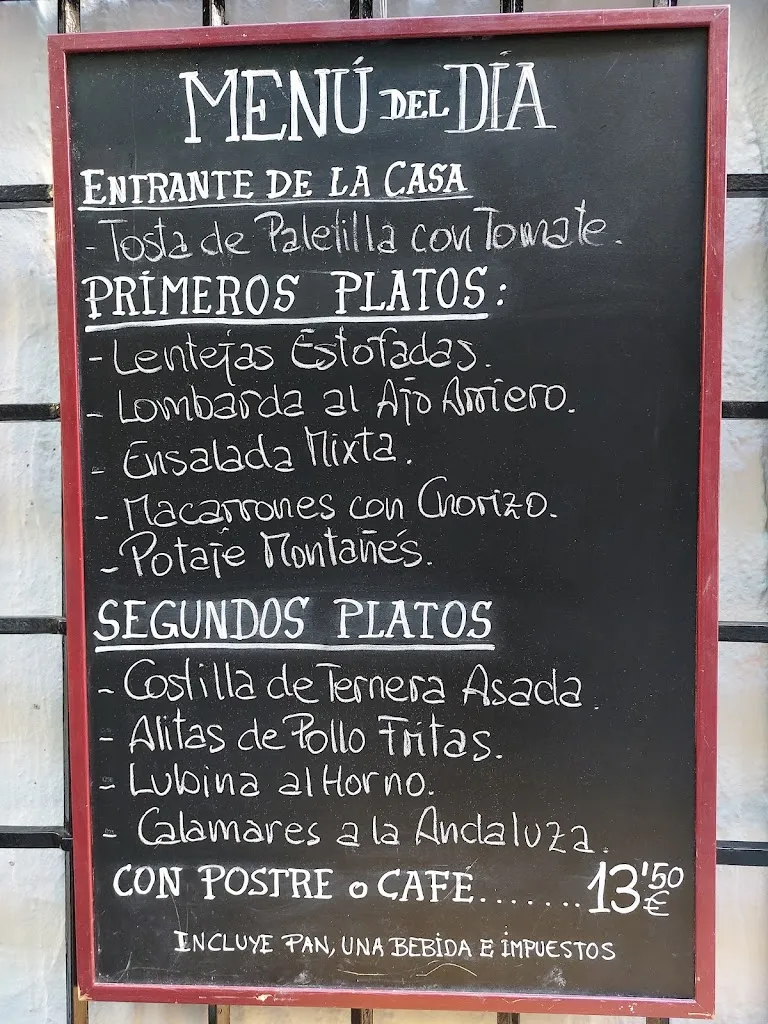 MENÚ DEL DÍA
ENTRANTE DE LA CASA
- Tosta de Paletilla con Tomate.
PRIMEROS PLATOS:
- Lentejas Estofadas.
- Lombarda al Ajo Arriero.
- Ensalada Mixta.
- Macarrones con Chorizo.
- Potaje Montañés.
SEGUNDOS PLATOS
- Costilla de Ternera Asada.
- Alitas de Pollo Fritas.
- Lubina al Horno.
- Calamares a la Andaluza.
CON POSTRE o CAFÉ.......13'50 €
INCLUYE PAN, UNA BEBIDA E IMPUESTOS